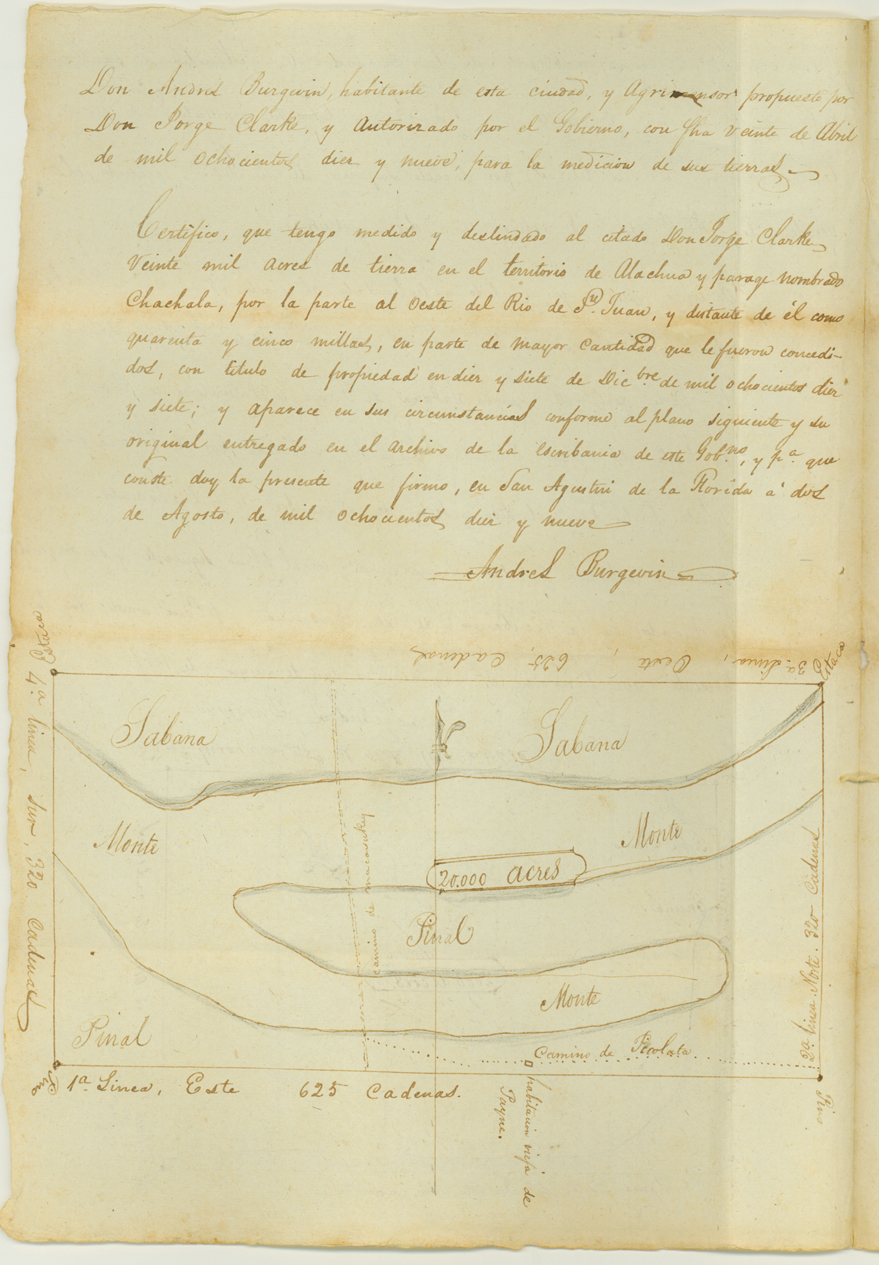 Don Andres Burgevin, habitante de esta ciudad, y Agrimensor propuesto por
Don Jorge Clarke, y autorizado por el Gobierno, con fha veinte de Abril
de mil ochocientos diez y nueve, para la medicion de sus tierras
Certifico, que tengo medido y deslindado al citado Don Jorge Clarke
Veinte mil acres de tierra en el territorio de Alachua y parage nombrado
Chachala, por la parte al oeste del Rio de Sn. Juan, y distante de él como
quarenta y cinco millas, en parte de mayor cantidad que le fueron concedi-
dos, con titulo de propiedad en diez y siete de Dicbre de mil ochocientos diez
y siete; y aparece en sus circunstancias conforme al plano siguiente y su
original entregado en el archivo de la escribania de este Gobno, y pa. que
conste doy la presente que firmo, en San Agustin de la Florida á dos
de Agosto, de mil ochocientos diez y nueve
Andres Burgevin
3a. linea, Oeste, 625, Cadenas
Estaca
4.a linea, sur, 320 Cadenas
Sabana
Sabana
Monte
Monte
20.000 acres
Camino de
Pinal
Monte
Pinal
Camino de Picolata
2a. linea. Norte. 320 Cadenas
1a. Linea, Este 625 Cadenas.
habitacion vieja de
Payne.
Pino